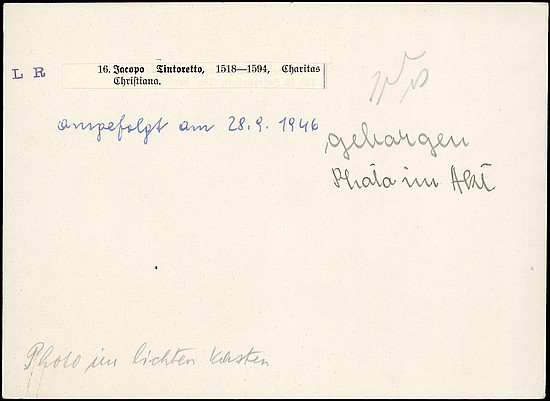 L R
16. Jacopo Tintoretto, 1518—1594, Charitas
Christiana.
ausgefolgt am 28.9.1946
geborgen
Photo im Akt
Photo im lichten Kasten